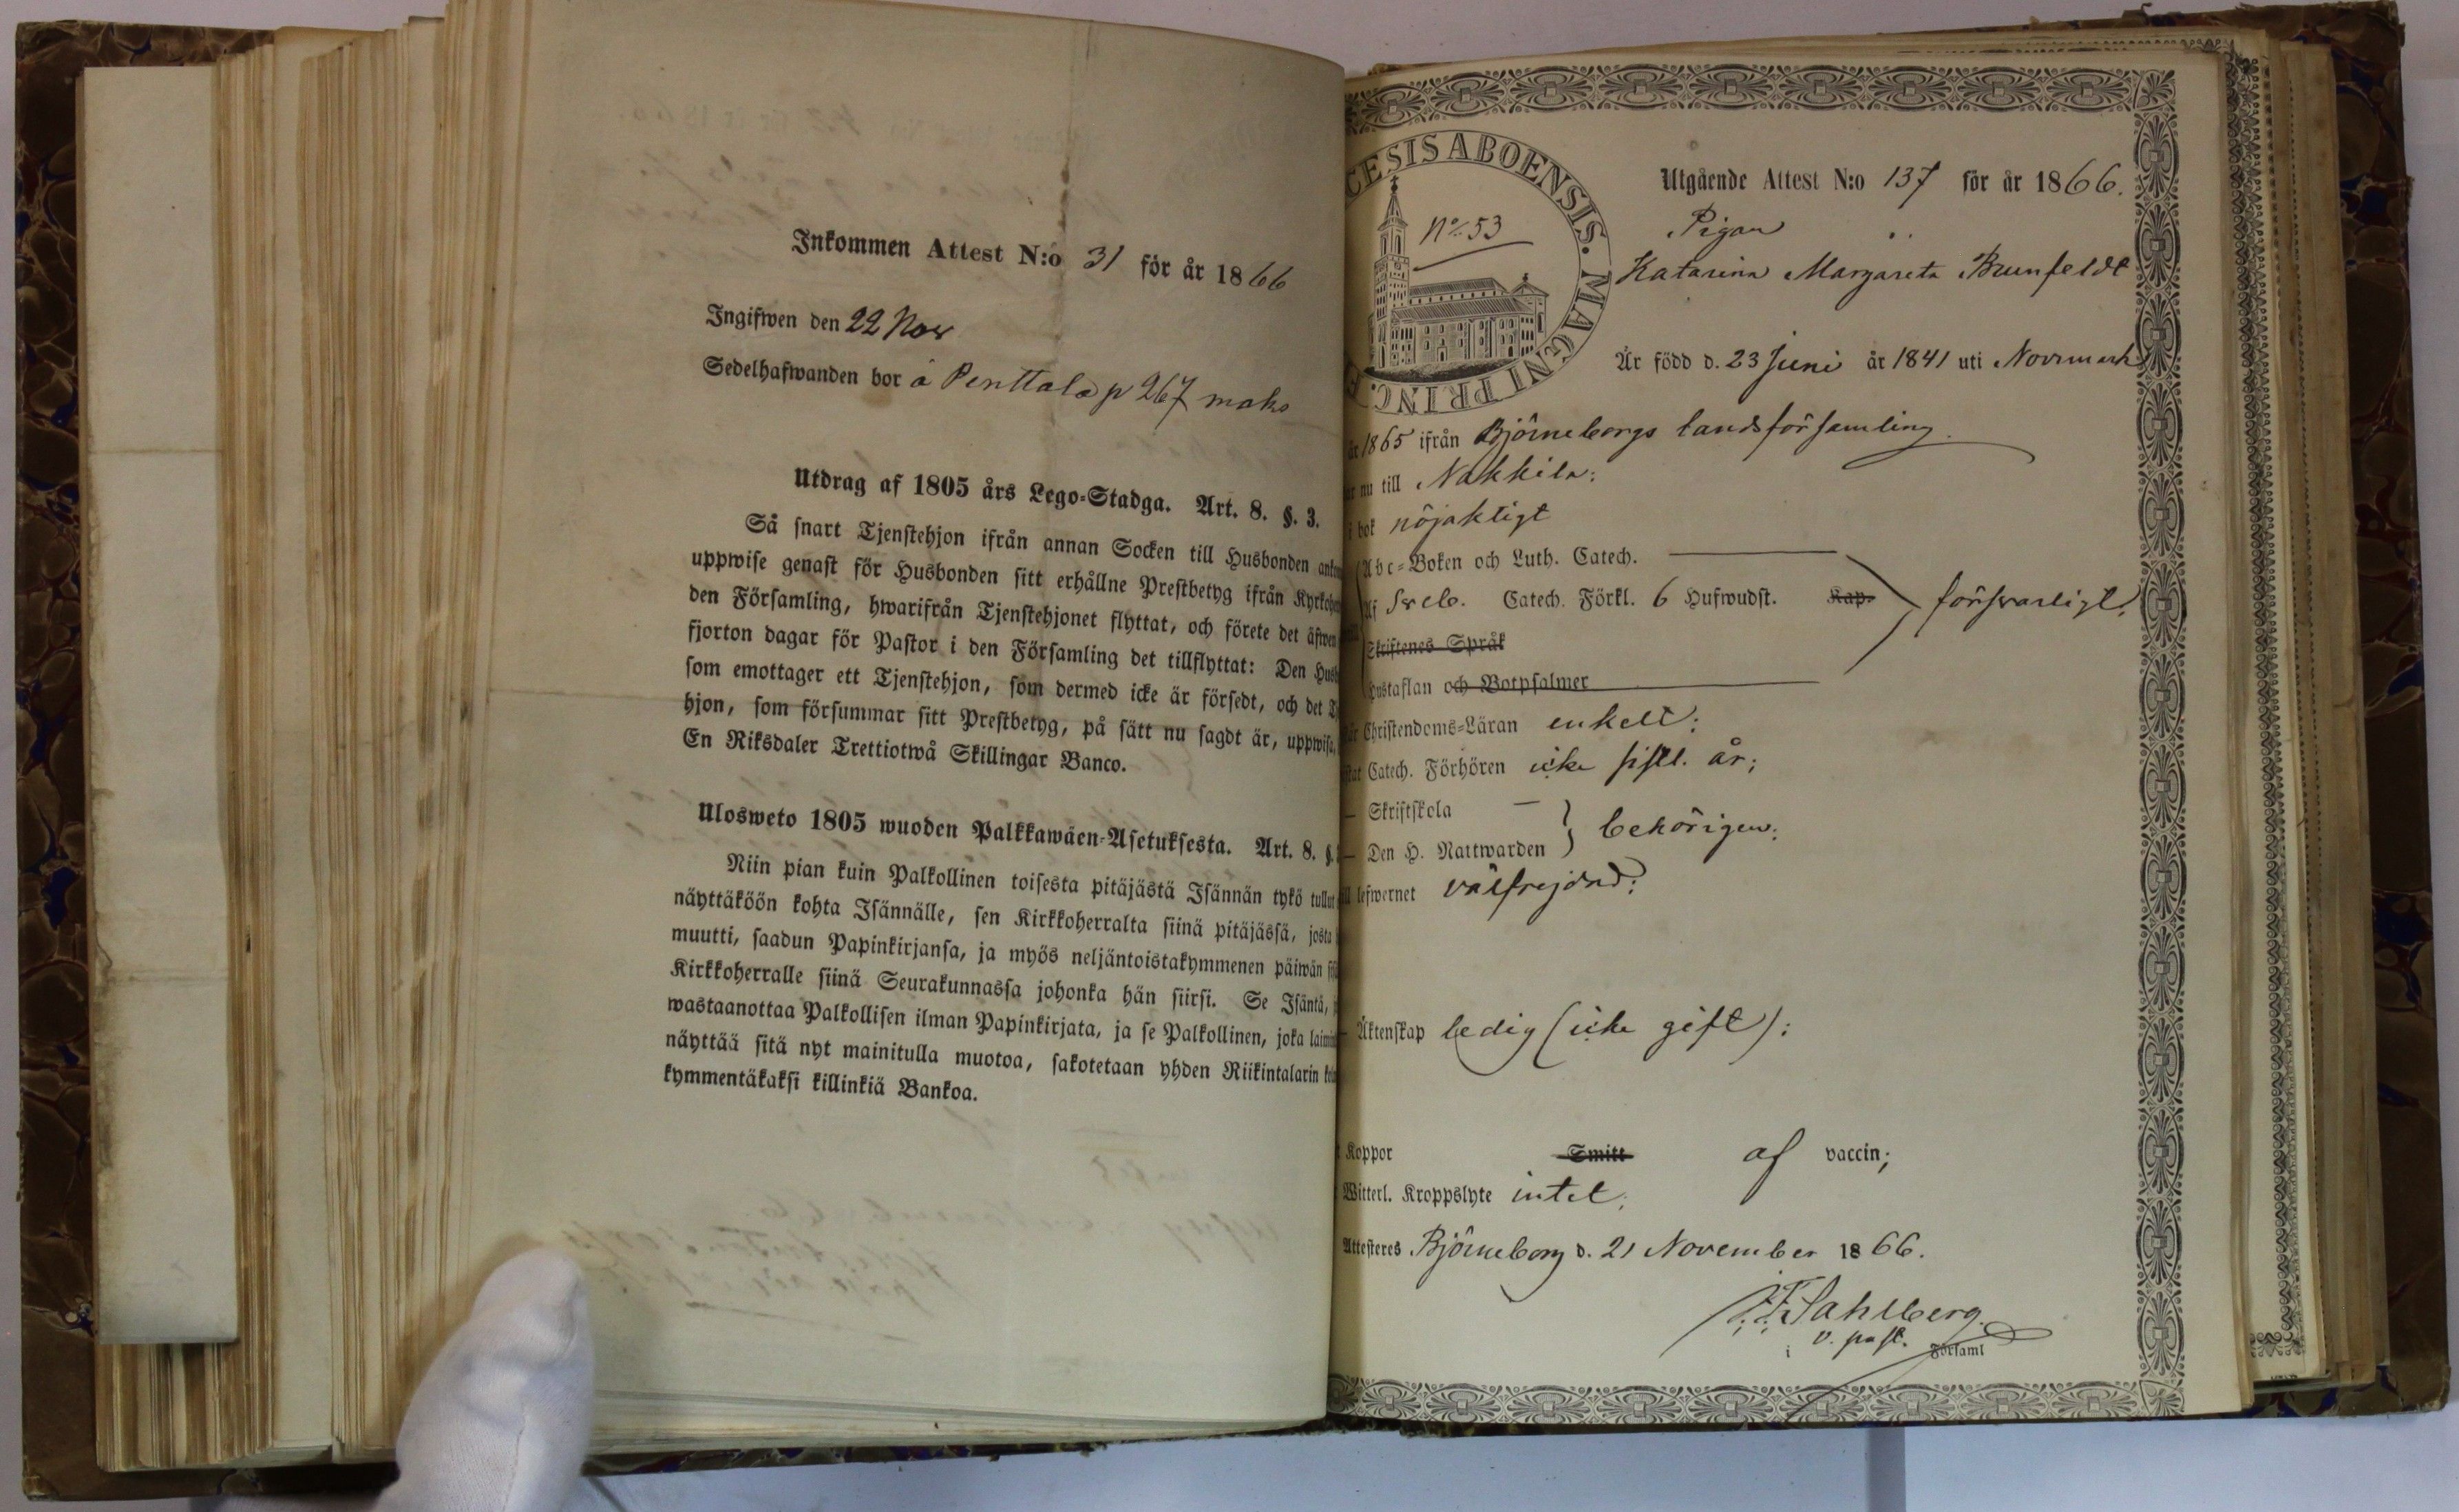 Inkommen Attest N:o 31 för år 1866
Ingifwen den 22 Nov
Sedelhafwanden bor å Penttala p 267 maks
Utdrag af 1805 års Lego-Stadga. Art. 8. §. 3.
Så snart Tjenstehjon ifrån annan Socken till Husbonden
uppwise genast för Husbonden sitt erhållne Prestbetyg ifrån
den Församling, hwarifrån Tjenstehjonet flyttat, och förete det äfwen
fjorton dagar för Pastor i den Församling det tillflyttat: Den
som emottager ett Tjenstehjon, som dermed icke är försedt, och det
hjon, som försummar sitt Prestbetyg, på sätt nu sagdt är, uppwisa,
En Riksdaler Trettiotwå Skillingar Banco.
Ulosweto 1805 wuoden Palkkawäen-Asetuksesta. Art. 8. §.
Niin pian kuin Palkollinen toisesta pitäjästä Isännän tykö tullut
näyttäköön kohta Isännälle, sen Kirkkoherralta siinä pitäjässä, josta
muutti, saadun Papinkirjansa, ja myös neljäntoistakymmenen päiwän
Kirkkoherralle siinä Seurakunnassa johonka hän siirsi. Se Isäntä,
wastaanottaa Palkollisen ilman Papinkirjata, ja se Palkollinen, joka
näyttää sitä nyt mainitulla muotoa, sakotetaan yhden Riikintalarin
kymmentäkaksi killinkiä Bankoa.
CESIS ABOENSIS. MAGNI PRINC.
No 53
Utgående Attest N:o 137 för år 1866.
Pigan
Katarina Margareta Brunfeldt
Är född d. 23 Juni år 1841 uti Norrmark
år 1865 ifrån Björneborgs landsförsamling.
nu till Nakkila:
i bok nöjaktigt
Abc-Boken och Luth. Catech.
Af Sveb. Catech. Förkl. 6 Hufwudst. Kap. försvarligt:
Skriftenes Språk
Hustaflan och Botpsalmer
Christendoms-Läran enkelt:
Catech. Förhören icke sistl. år;
— Skriftskola —
— Den H. Nattwarden } behörigen:
lefwernet välfrejdad:
Äktenskap ledig (icke gift):
Koppor Smitt af vaccin;
Witterl. Kroppslyte intet;
Attesteres Björneborg d. 21 November 1866.
Sahlberg.
v. past.
i Församl